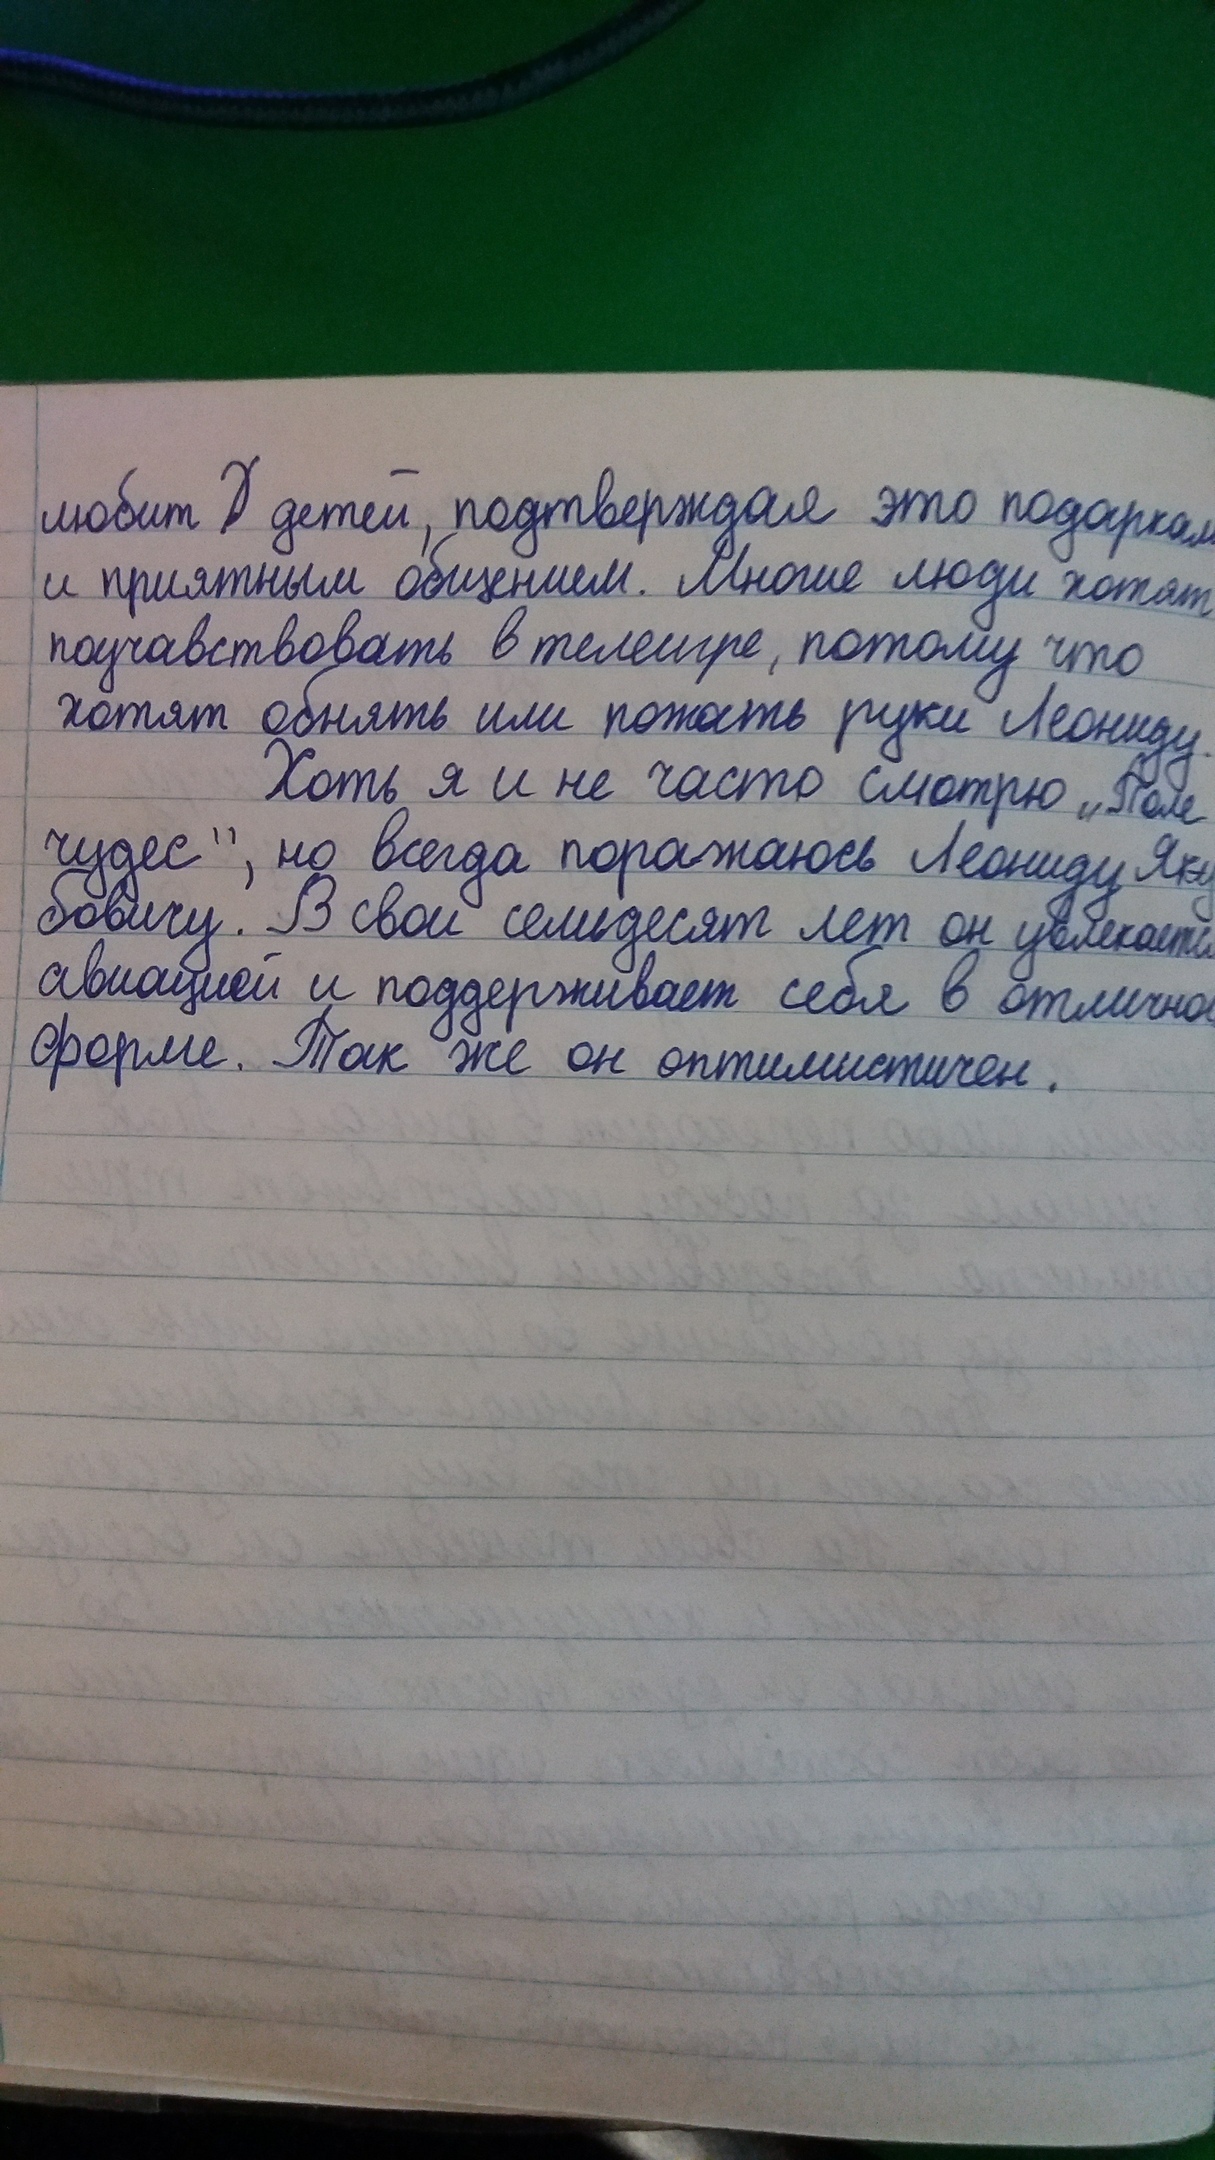 любит детей, подтверждая это подаркам
и приятным общением. Многие люди хотят
поучавствовать в телеигре, потому что
хотят обнять или пожать руки Леониду.
Хоть я и не часто смотрю „Поле
чудес", но всегда поражаюсь Леониду Яку
бовичу. В свои семьдесят лет он увлекается
авиацией и поддерживает себя в отличной
форме. Так же он оптимистичен.